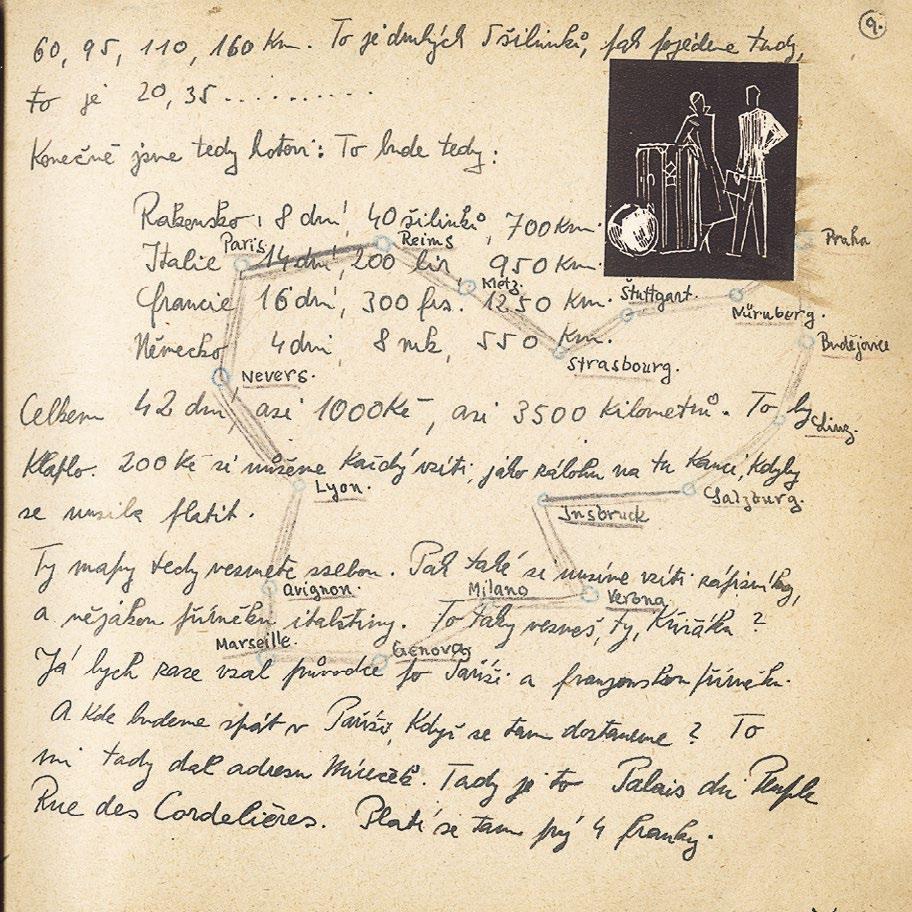 9.
60, 95, 110, 160 Km. To je druhých 5 šilinků, pak pojedeme tudy,
to je 20, 35 ..........
Konečně jsme tedy hotovi: To bude tedy:
Rakousko: 8 dní, 40 šilinků, 700 Km.
Paris Reims Praha
Italie 14 dní, 200 lir 950 Km.
Metz. Stuttgart.
Francie 16 dní, 300 frs. 1250 Km.
Nürnberg.
Německo 4 dni, 8 mk, 550 Km.
Budějovice
Nevers. Strasbourg.
Celkem 42 dní, asi 1000 Kč, asi 3500 Kilometrů. To by
Linz.
klaplo. 200 Kč si můžeme každý vzíti, jako zálohu na tu kauci, kdyby
Lyon. Salzburg.
se musila platit.
Insbruck
Ty mapy tedy vezmete ssebou. Pak také si musíme vzíti zápisníky,
Avignon. Milano Verona
a nějakou příručku italštiny. To taky vezmeš, ty, Kužáku?
Marseille. Genova
Já bych zase vzal průvodce po Paříži a francouzskou příručku.
A kde budeme spát v Paříži, když se tam dostaneme? To
mi tady dal adresu Mireček. Tady je to Palais du Peuple
Rue des Cordelières. Platí se tam prý 4 franky.